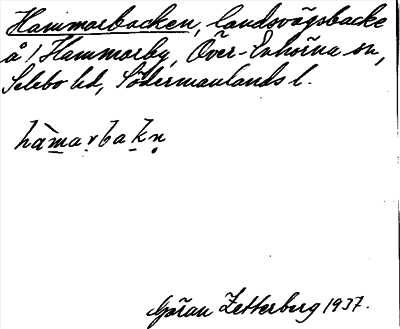 Hammarbacken, landsvägsbacke
å 1 Hammarby, Över-Enhörna sn,
Selebo hd, Södermanlands l.
hàmarbakn
Göran Zetterberg 1937.